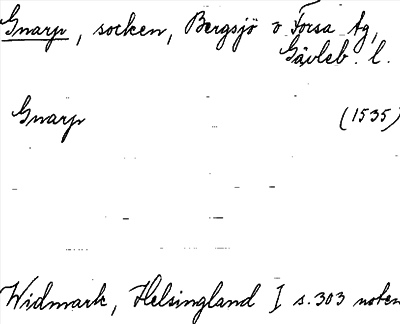 Gnarp, socken, Bergsjö o Forsa tg,
Gävleb. l.
Gnarp (1535)
Widmark, Helsingland I s. 303 noten